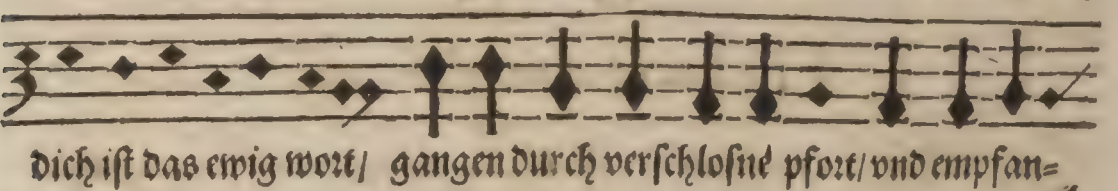 dich iſt das ewig wort/ gangen durch verſchloſné pfort/ vnd empfan⸗